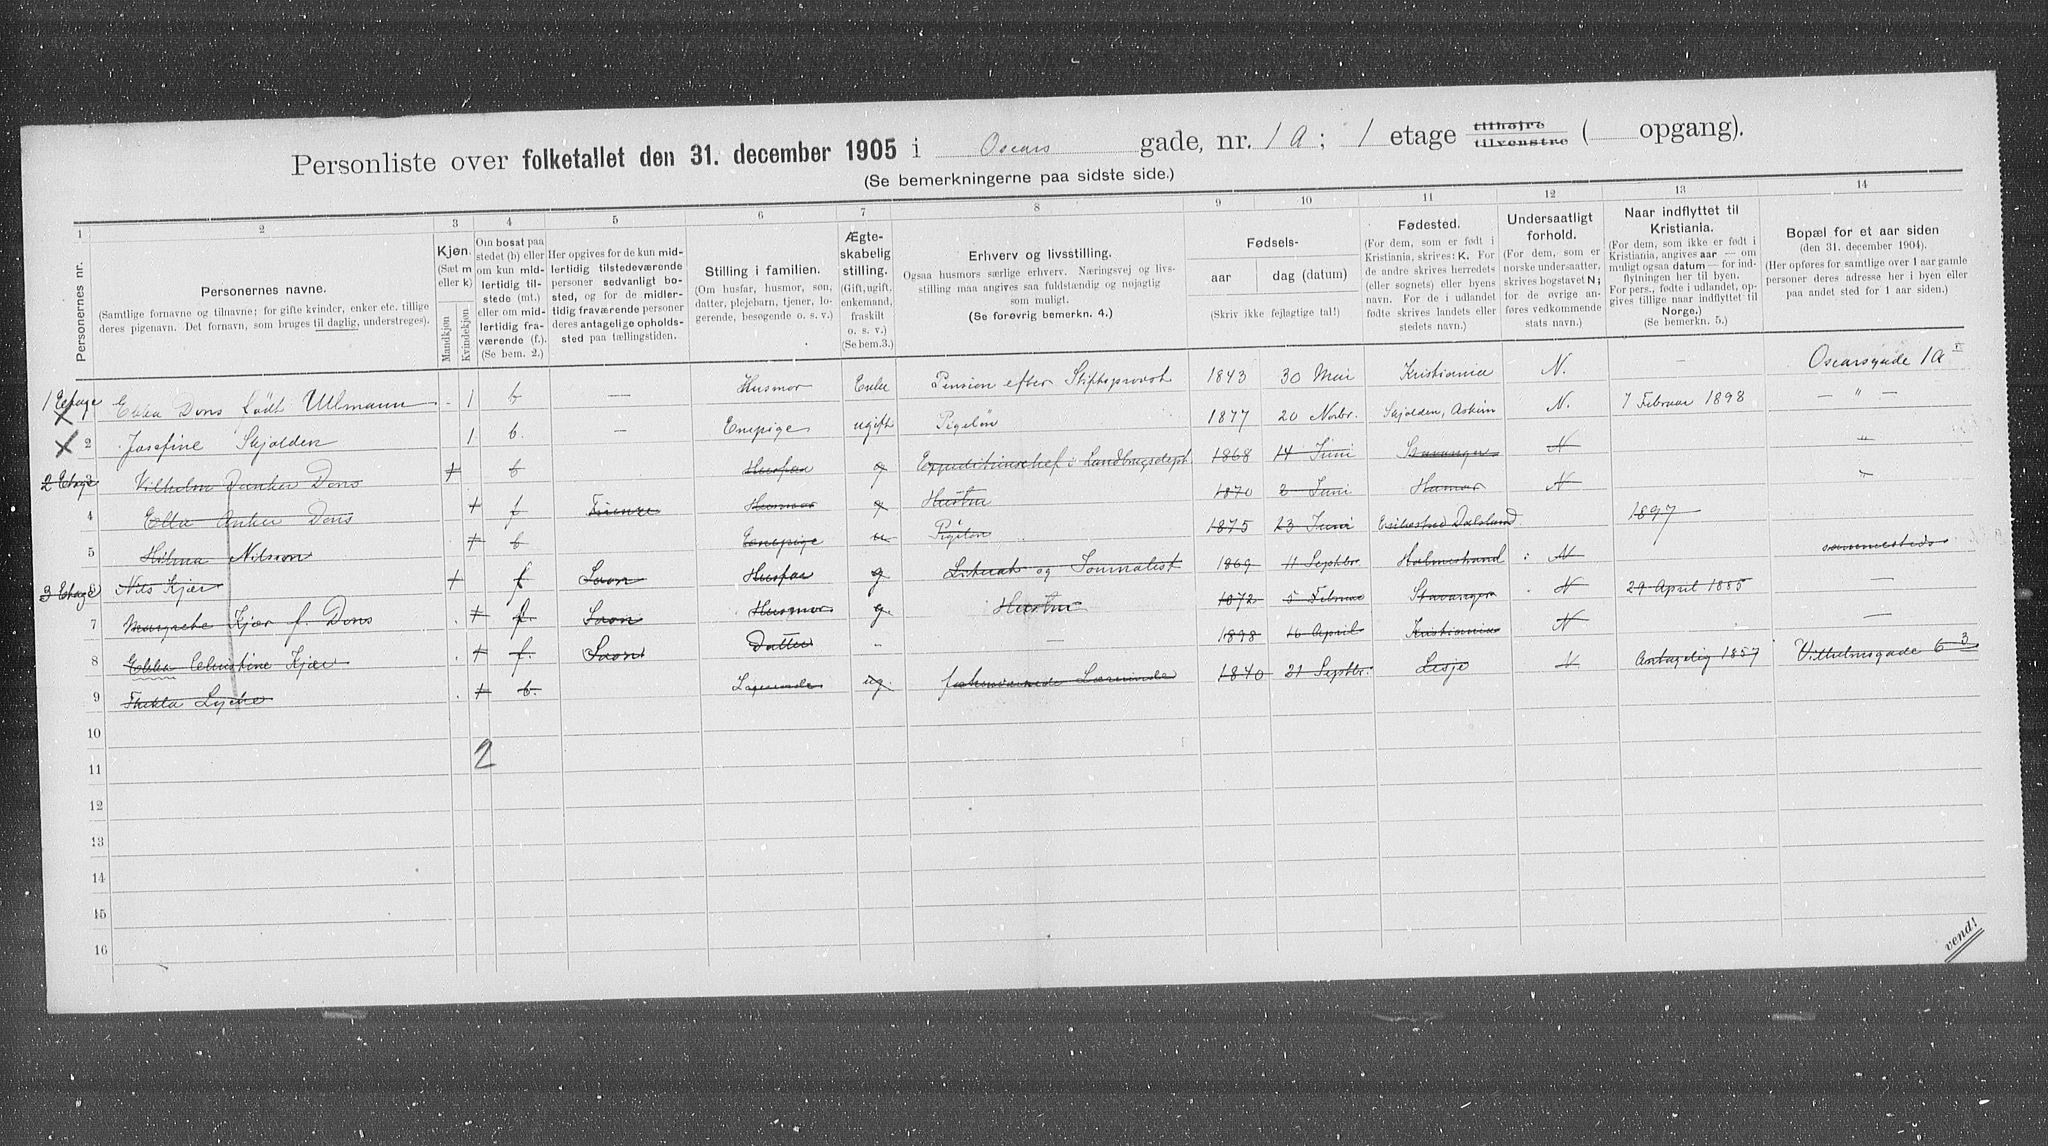 Personliste over folketallet den 31. december 1905 i Oscars gade, nr. 1 A; 1 etage tilhøjre tilvenstre ( opgang).
(Se bemerkningerne paa sidste side.)
1 2 3 4 5 6 7 8 9 10 11 12 13 14
Personernes nr.
Personernes navne.
(Samtlige fornavne og tilnavne; for gifte kvinder, enker etc. tillige deres pigenavn. Det fornavn, som bruges til daglig, understreges).
Kjøn.
(Sæt m eller k)
Mandkjøn Kvindekjøn
Om bosat paa stedet (b) eller om kun midlertidig tilstede (mt.) eller om midlertidig fraværende (f.). (Se bem. 2.)
Her opgives for de kun midlertidig tilstedeværende personer sedvanligt bosted, og for de midlertidig fraværende personer deres antagelige opholdssted paa tællingstiden.
Stilling i familien.
(Om husfar, husmor, søn, datter, plejebarn, tjener, logerende, besøgende o. s. v.)
Ægteskabelig stilling.
(Gift, ugift, enkemand, fraskilt o. s. v.)
(Se bem.3.)
Erhverv og livsstilling.
Ogsaa husmors særlige erhverv. Næringsvej og livsstilling maa angives saa fuldstændig og nøjagtig som muligt.
(Se forøvrig bemerkn. 4.)
Fødsels-
aar dag (datum)
(Skriv ikke fejlagtige tal!)
Fødested.
(For dem, som er født i Kristiania, skrives: K. For de andre skrives herredets (eller sognets) eller byens navn. For de i udlandet fødte skrives landets eller stedets navn.)
Undersaatligt forhold.
(For dem, som er norske undersaatter, skrives bogstavet N; for de øvrige anføres vedkommende stats navn.)
Naar indflyttet til Kristiania.
(For dem, som ikke er født i Kristiania, angives aar — om muligt ogsaa datum — for indflytningen her til byen. For pers., fødte i udlandet, opgives tillige naar indflyttet til Norge.)
(Se bemerkn. 5.)
Bopæl for et aar siden
(den 31. december 1904).
(Her opføres for samtlige over 1 aar gamle personer deres adresse her i byen eller paa andet sted for 1 aar siden.)
1 Etage Ebba Dons født Ullmann 1 b — Husmor Enke Pension efter Stiftsprovst 1843 30 Mai Kristiania N. — Oscarsgade 1A I
2 Josefine Skjolden 1 b. — Enepige ugift Pigeløn 1877 20 Novbr. Skjolden, Askim N. 7 Februar 1898 — " —
2 Etage 3 Vilhelm Dons b Husfar g Expeditionschef i Landbrugsdept. 1868 14 Juni Stavanger N "
4 Anker Dons f Firenze Husmor g Hustru 1870 2 Juni Hamar N "
5 Hilma Nilsson b Enepige u Pigeløn 1875 23 Juni Dalsland 1897
3 Etage 6 Nils Kjær f Husfar g Literat og Journalist 1869 11 Septbr. Holmestrand N sammesteds
7 Margrethe Kjær f. Dons f. Husmor g. Hustru 1872 5 Februar Stavanger N 29 April 1885 —
8 Ebba Christine Kjær f. Datter - — 1898 16 April Kristiania N —
9 Thekla b. Logerende ug. Lærerinde 1840 21 Septbr. Lesje N Antagelig 1857 Vilhelmsgade 6 3
10
11 2
12
13
14
15
16
vend!